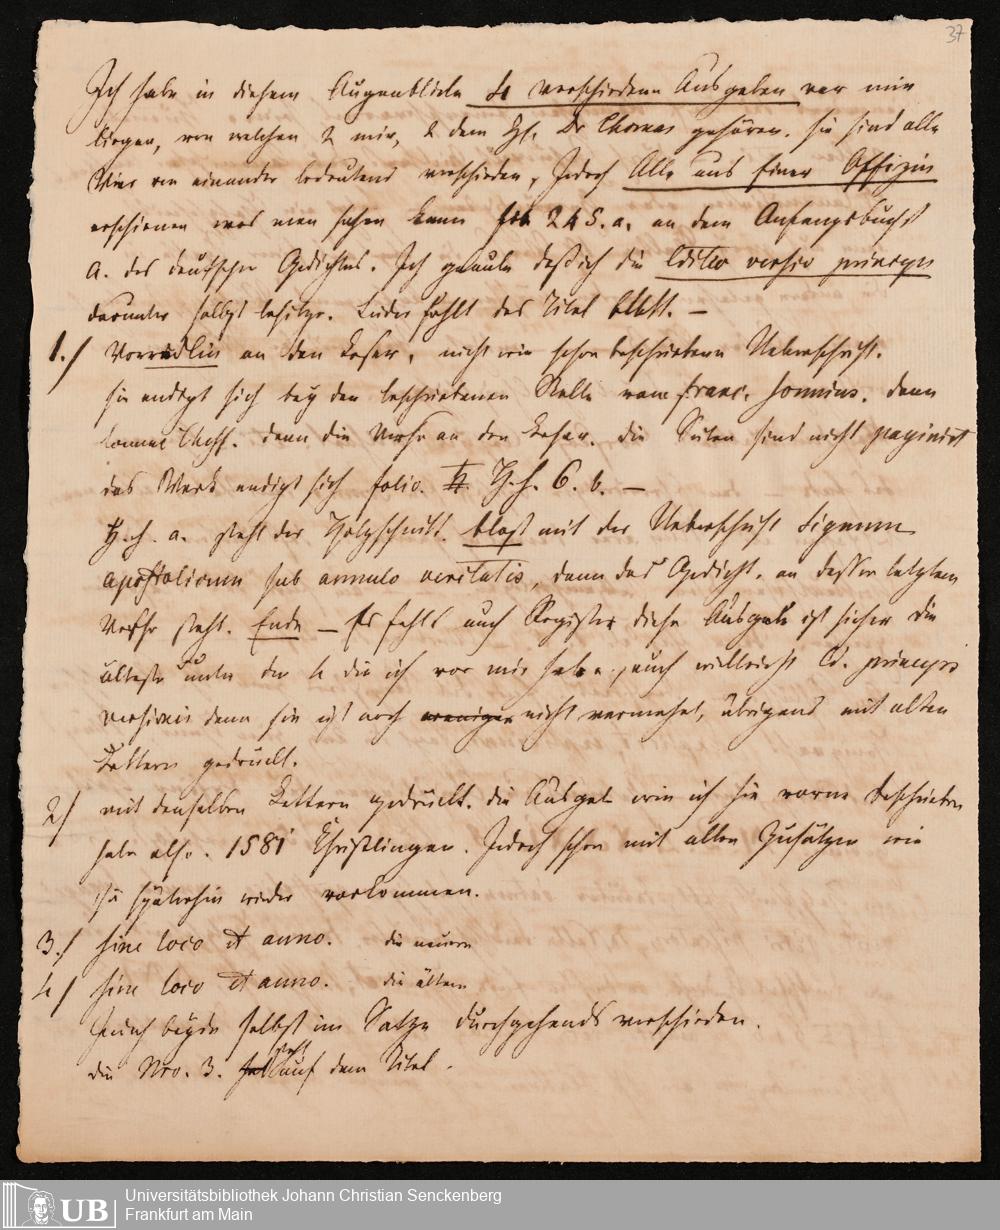 37
Ich habe in diesem Augenblicke 4 verschiedene Ausgaben vor mir
liegen, von welchen 2 mir, 2 dem H. Dr Thomas gehören. sie sind alle
Vier von einander bedeutend verschieden, Jedoch Alle aus Einer Offizin
erschienen was man sehen kann fol. 245. a. an dem Anfangsbuchst
A. des deutschen Gedichtes. Ich glaube daß ich die Editio versio princeps
darunter selbst besitze. Leider fehlt das Titel blatt. —
1./ Vorredlin an den Leser, nicht wie schon beschriebene Ueberschrift.
sie endigt sich bey der beschriebenen Stelle vom Franc. Sonnius. dann
kommt die Verse an den Leser. die Seiten sind nicht paginirt
das Werk endigt sich folio. H.h. 6. b. —
H.h. a. steht der Holzschnitt. bloß mit der Ueberschrift Signum
apostolicum sub annulo veritatis, dann das Gedicht. an dessen letztem
Verse steht. Ende — Es fehlt auch Register diese Ausgabe ist sicher die
älteste unter den 4 die ich vor mir habe, auch vielleicht Ed. princeps
versionis denn sie ist noch nicht vermehrt, übrigens mit alten
Lettern gedruckt.
2/ mit denselben Lettern gedruckt. die Ausgabe wie ich sie vorne beschrieben
habe also. 1581 Christlingen. Jedoch schon mit allen Zusätzen wie
sie späterhin wieder vorkommen.
3./ sine loco et anno. die neuere
4/ sine loco et anno. die ältere
Jedoch beyde selbst im Satze durchgehends verschieden.
die Nro. 3. steht auf dem Titel.
UB
Universitätsbibliothek Johann Christian Senckenberg
Frankfurt am Main